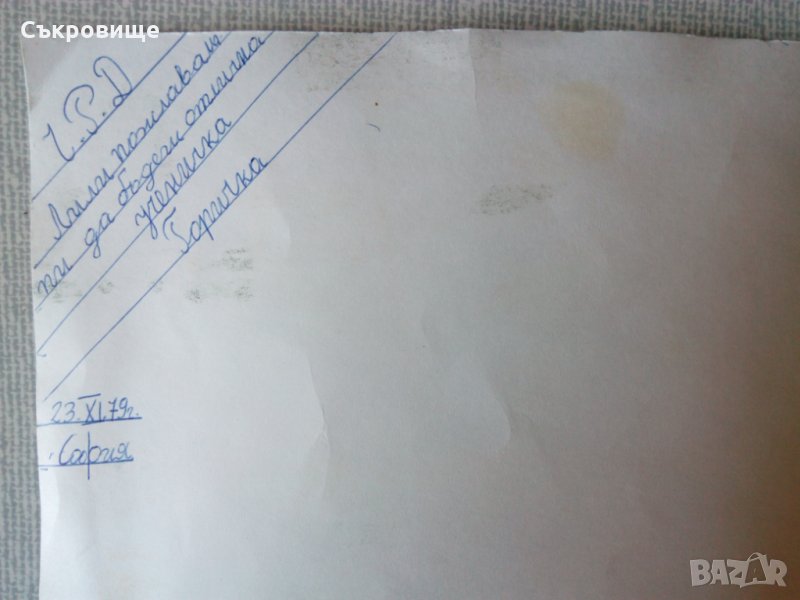 Съкровище
Ч.Р.Д
Лили пожелавам
ти да бъдеш отлична
ученичка
Горичка
23.XI.79г.
София
BAZAR